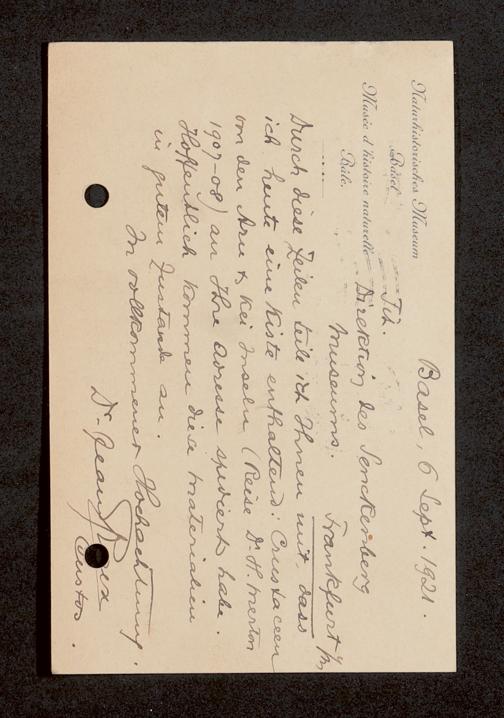 Naturhistorisches Museum
Basel
Musée d'histoire naturelle
Bâle.
Basel, 6 Sept. 1921.
Tit.
Direktion des Senckenberg
Museums.
Frankfurt a/M
Durch diese Zeilen teile ich Ihnen mit, dass
ich heute eine Kiste enthaltend: Crustaceen
von den Aru & Kei Inseln (Reise Dr. H. Merton
1907-08) an Ihre Adresse spediert habe.
Hoffentlich kommen diese Materialien
in gutem Zustande an.
In vollkommener Hochachtung.
Dr. Jean Roux
Custos.